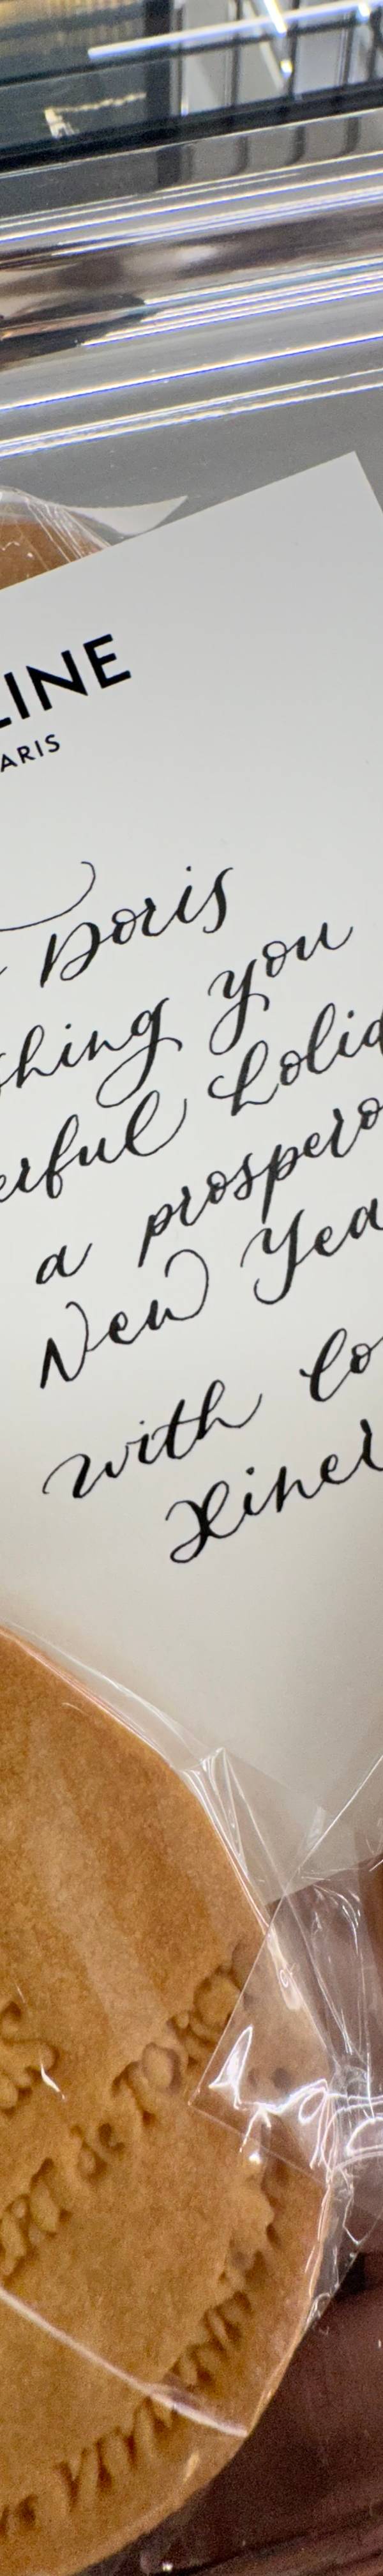 LINE
ARIS
Doris
shing you
erful holid
a prospero
New Yea
with lo
Xinel
ERT de TORCY